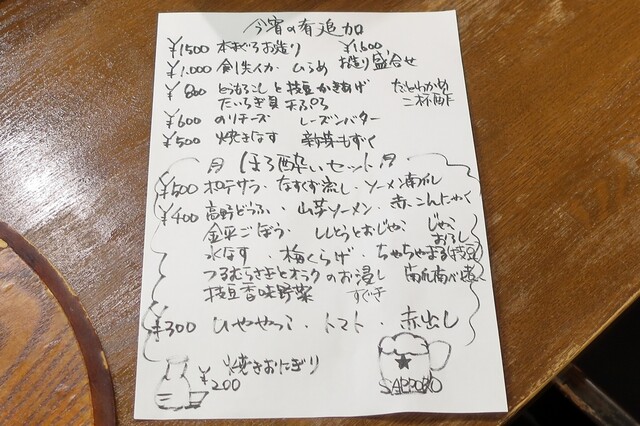 今宵の有追加
¥1500 本まぐろお造り ¥1,600
¥1,000 剣先イカ ひらめ お造り盛合せ
¥800 とうもろこしと枝豆かきあげ たことわかめ
たいらぎ貝天ぷら 二杯酢
¥600 のりチーズ レーズンバター
¥500 焼きなす もずく
ほろ酔いセット
¥500 ポテサラ・なすくず流し・ソーメン南瓜
¥400 高野どうふ・山芋ソーメン・赤こんにゃく
金平ごぼう・ししとうとおじゃこ じゃこ
おろし
水なす・梅くらげ・ちゃちゃまる枝豆
つるむらさきとオクラのお浸し
枝豆香味野菜 すぐき
¥300 ひややっこ・トマト・赤出し
焼きおにぎり
¥200
SAPPORO